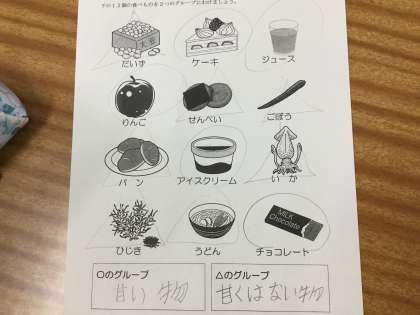 下の12個の食べものを2つのグループにわけましょう。
大豆
だいず
ケーキ
ジュース
りんご
せんべい
ごぼう
パン
アイスクリーム
いか
MILK
Chocolate
ひじき
うどん
チョコレート
○のグループ
甘い物
△のグループ
甘くはない物